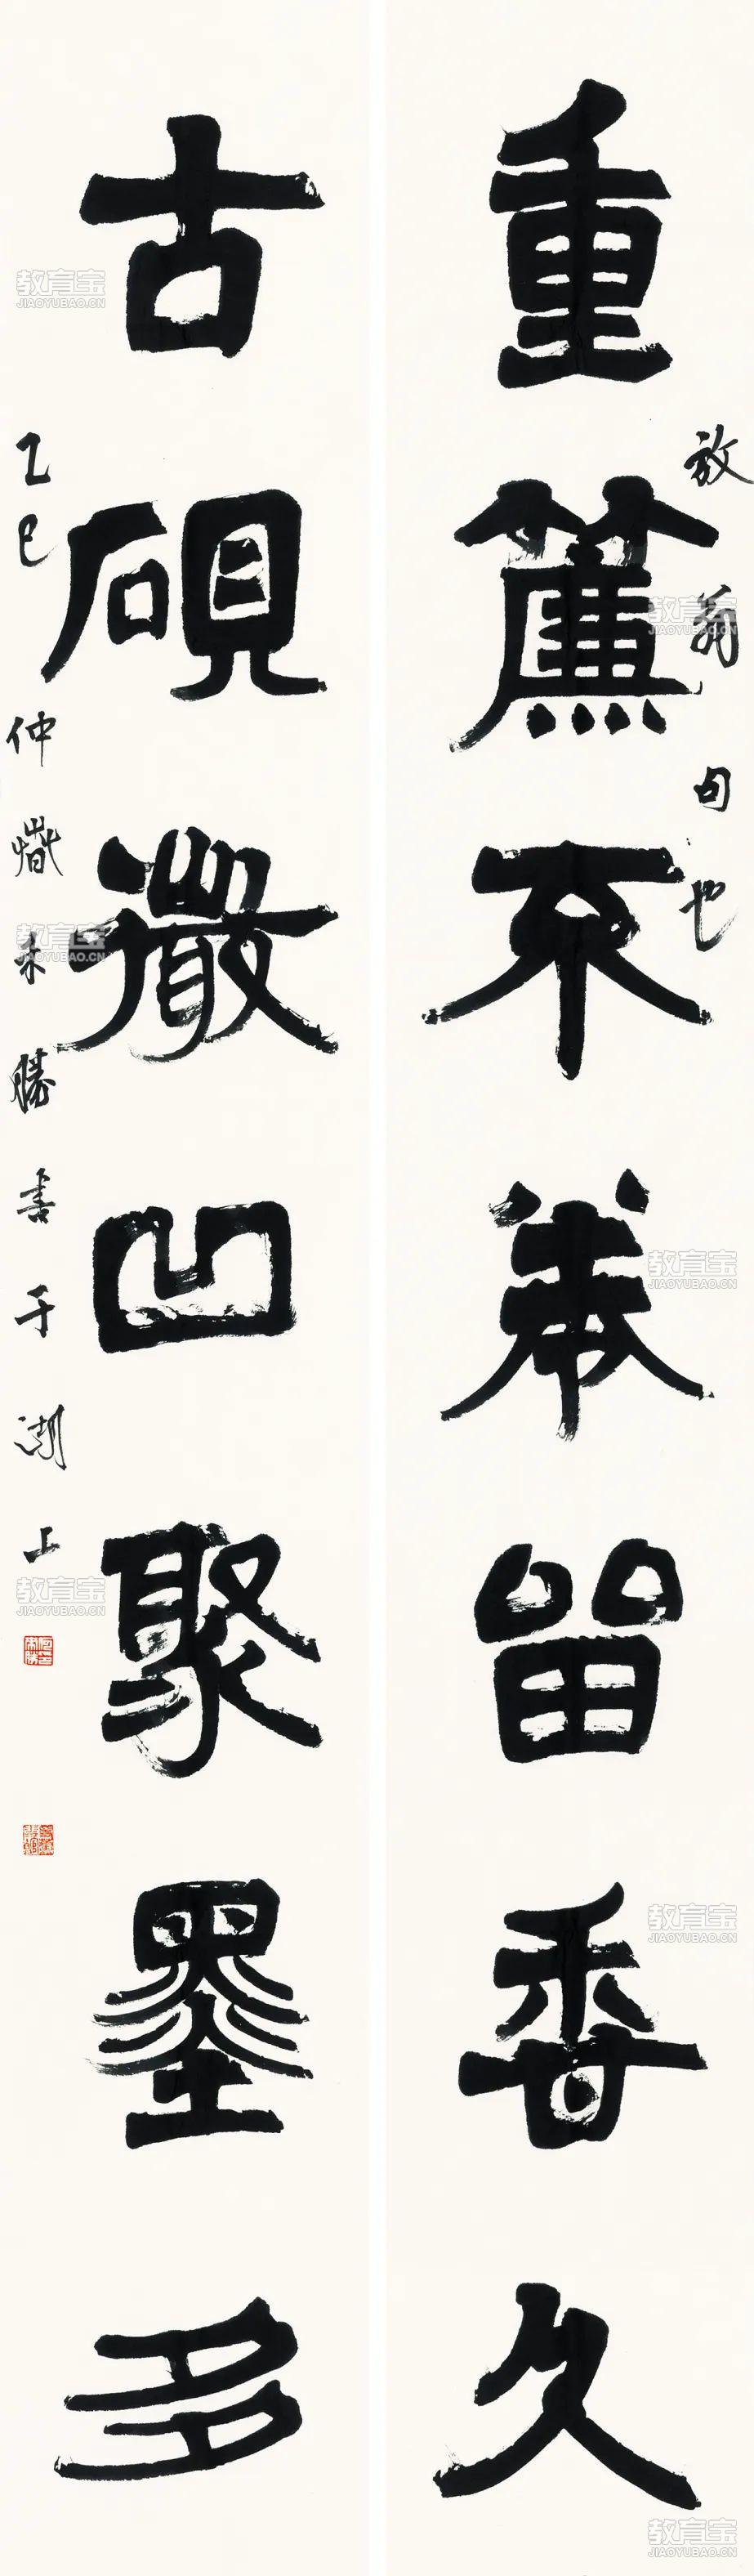 重簾不卷留香久
放翁句也
古硯微凹聚墨多
乙巳仲 勝書于湖上
教育宝
JIAOYUBAO.CN
教育宝
JIAOYUBAO.CN
教育宝
JIAOYUBAO.CN
教育宝
JIAOYUBAO.CN
教育宝
JIAOYUBAO.CN
教育宝
JIAOYUBAO.CN
教育宝
JIAOYUBAO.CN